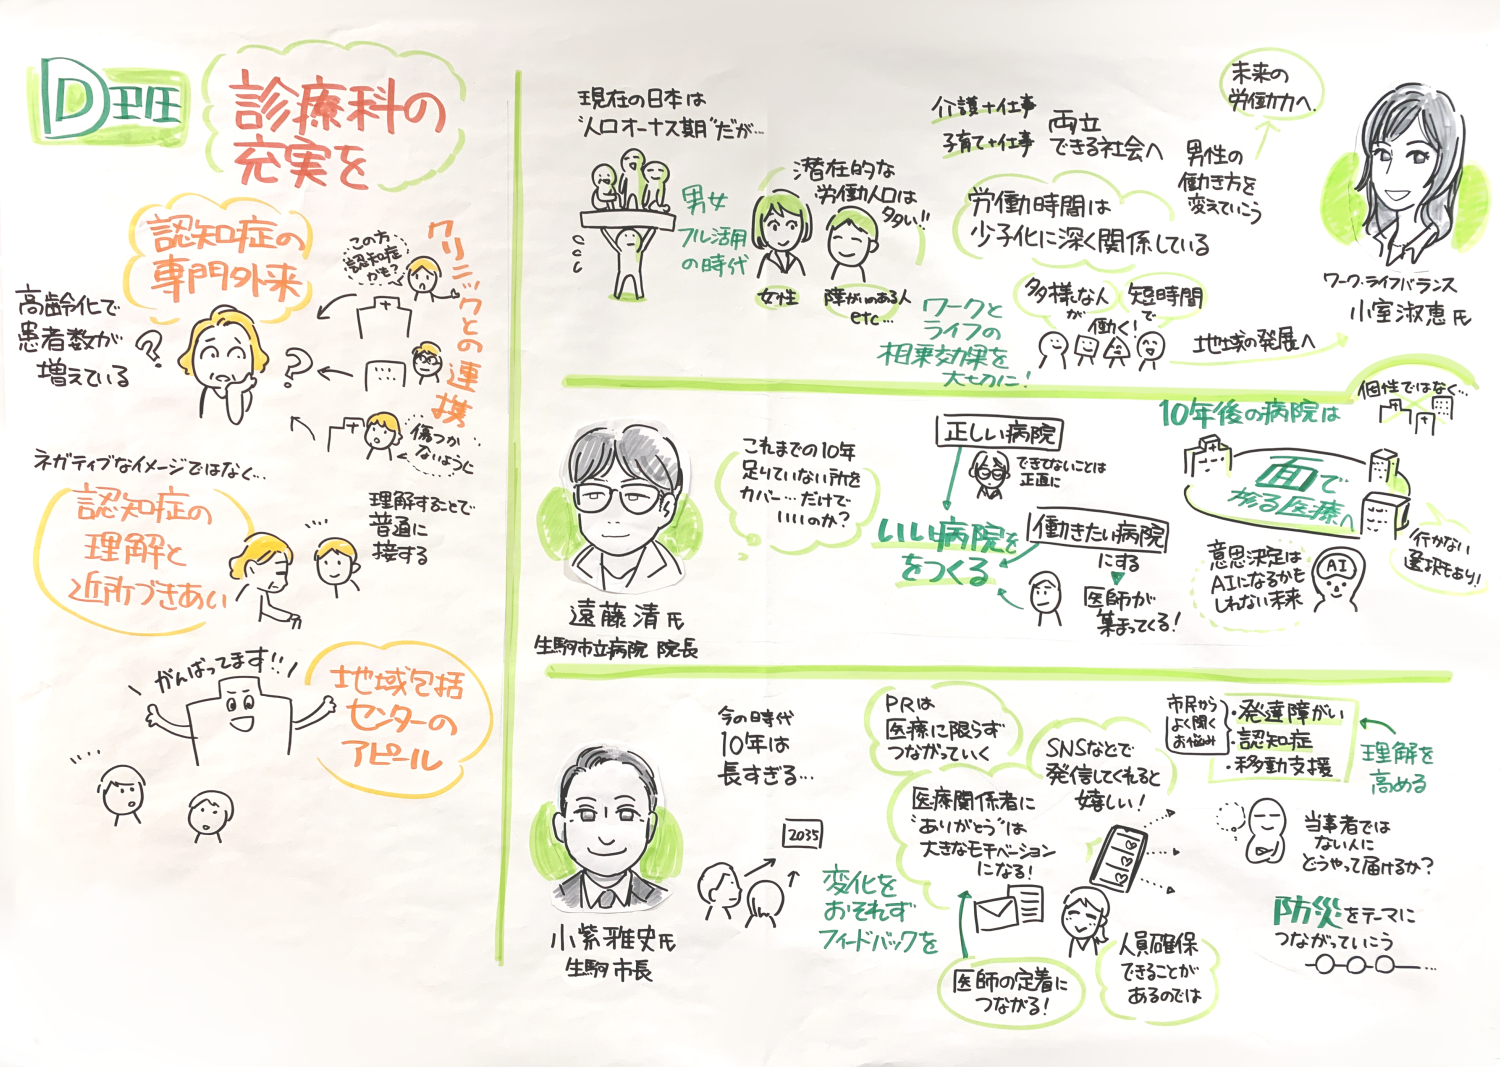 D班
診療科の
充実を
認知症の
専門外来
高齢化で
患者数が
増えている
?
?
この方
認知症
かも?
クリニックとの連携
傷つか
ないように
ネガティブなイメージではなく…
認知症の
理解と
近所づきあい
理解することで
普通に
接する
がんばってます!!
地域包括
センターの
アピール
現在の日本は
"人口オーナス期"だが…
男女
フル活用
の時代
潜在的な
労働人口は
多い!!
女性
障がいのある人
etc…
介護+仕事
子育て+仕事
両立
できる社会へ
未来の
労働力へ.
男性の
働き方を
変えていこう
労働時間は
少子化に深く関係している
ワークと
ライフの
相乗効果を
大切に!
多様な人
が
短時間
で
働く!
地域の発展へ
ワーク・ライフバランス
小室淑恵氏
遠藤清氏
生駒市立病院 院長
これまでの10年
足りていない所を
カバー…だけで
いいのか?
正しい病院
できてないことは
正直に
いい病院を
をつくる
働きたい病院
にする
医師が
集まってくる!
10年後の病院は
個性ではなく…
面で
診る医療へ
意思決定は
AIになるかも
しれない未来
AI
行かない
選択もあり!
小紫雅史氏
生駒市長
今の時代
10年は
長すぎる…
2035
変化を
おそれず
フィードバックを
PRは
医療に限らず
つながっていく
医療関係者に
"ありがとう"は
大きなモチベーション
になる!
医師の定着に
つながる!
SNSなどで
発信してくれると
嬉しい!
人員確保
できることが
あるのでは
市民から
よく聞く
お悩み
・発達障がい
・認知症
・移動支援
理解を
高める
当事者では
ない人に
どうやって届けるか?
防災をテーマに
つながっていこう
…